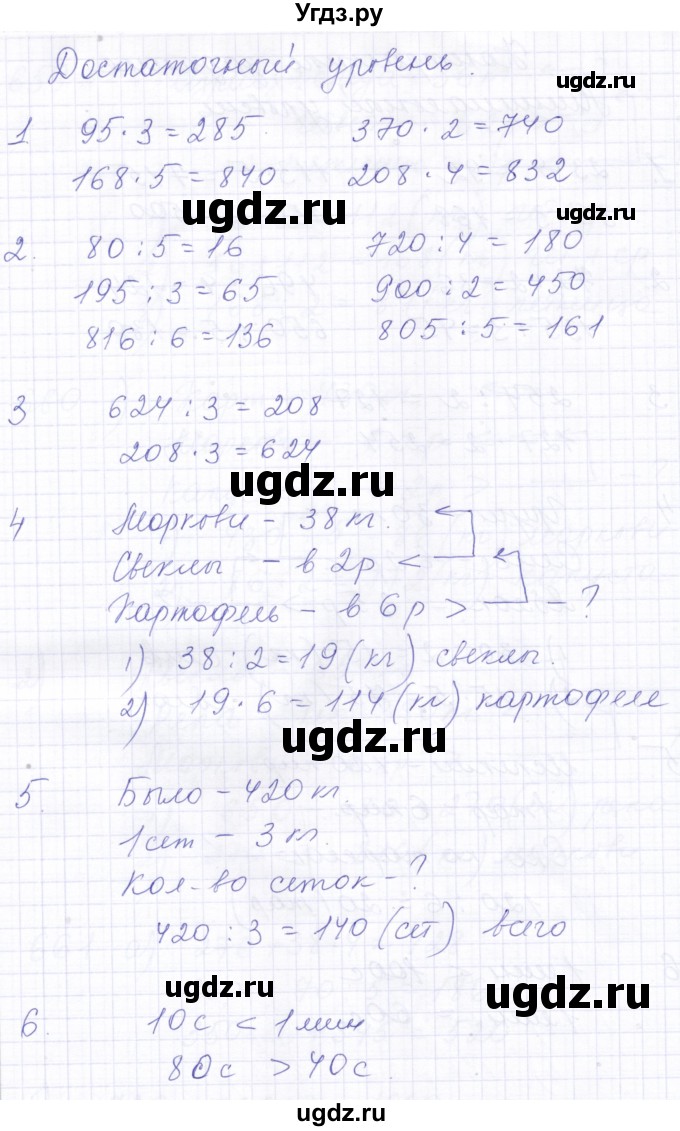 Угдз.ру
Достаточный уровень.
1 95·3=285 370·2=740
168·5=840 208·4=832
ugdz.ru ugdz.ru
2. 80:5=16 720:4=180
195:3=65 900:2=450
816:6=136 805:5=161
3 624:3=208
208·3=624
ugdz.ru
4 Моркови - 38 кг.
Свеклы - в 2р <
Картофель - в 6р > - ?
1) 38:2=19 (кг) свеклы.
2) 19·6=114 (кг) картофеле
ugdz.ru
5. Было - 420 кг.
1 сет - 3 кг.
Кол-во сеток - ?
420:3=140 (сет) всего
ugdz.ru ugdz.ru
6. 10с < 1 мин
80с > 40с.
ugdz.ru